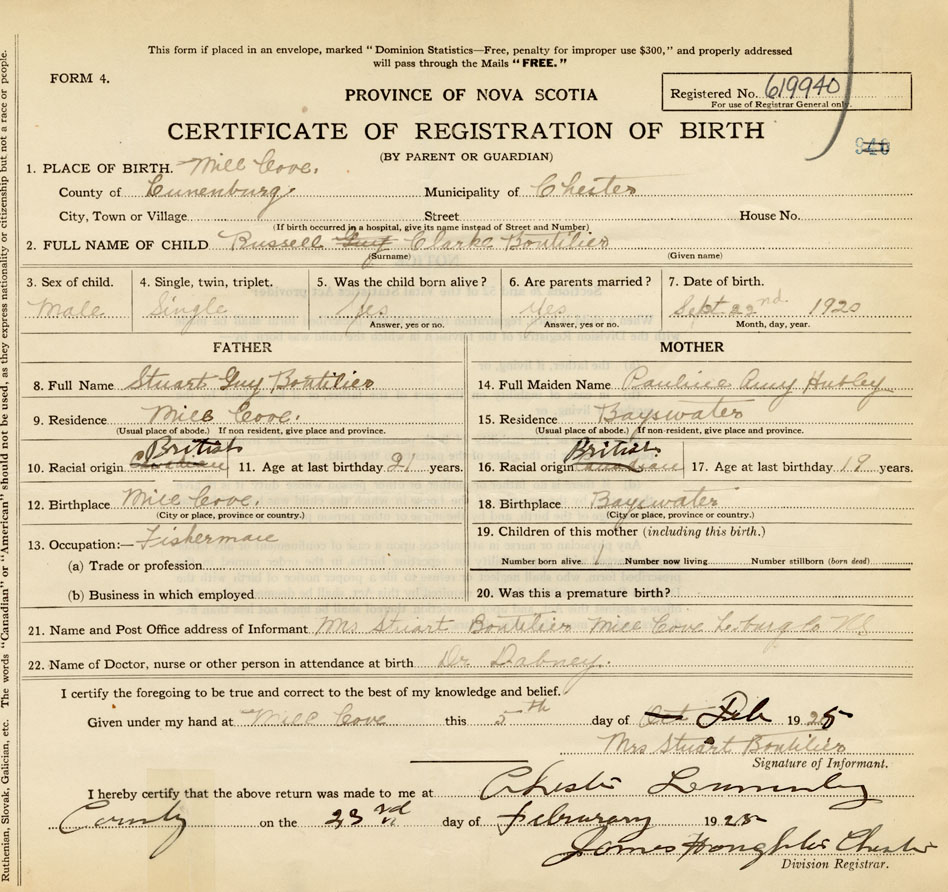 This form if placed in an envelope, marked "Dominion Statistics—Free, penalty for improper use $300," and properly addressed
will pass through the Mails "FREE."
FORM 4.
Registered No. 619940
For use of Registrar General only.
PROVINCE OF NOVA SCOTIA
CERTIFICATE OF REGISTRATION OF BIRTH
940
(BY PARENT OR GUARDIAN)
1. PLACE OF BIRTH. Mill Cove.
County of Lunenburg. Municipality of Chester
City, Town or Village Street House No.
(If birth occurred in a hospital, give its name instead of Street and Number)
2. FULL NAME OF CHILD Russell Guy Clarke Boutilier
(Surname) (Given name)
3. Sex of child. 4. Single, twin, triplet. 5. Was the child born alive? 6. Are parents married? 7. Date of birth.
Male Single Yes Yes Sept 22nd 1920
Answer, yes or no. Answer, yes or no. Month, day, year.
FATHER MOTHER
8. Full Name Stuart Guy Boutilier 14. Full Maiden Name Pauline Amy Hubley
9. Residence Mill Cove. 15. Residence Bayswater
(Usual place of abode.) If non-resident, give place and province. (Usual place of abode.) If non-resident, give place and province.
British British
10. Racial origin Canadian 11. Age at last birthday 21 years. 16. Racial origin Canadian 17. Age at last birthday 19 years.
12. Birthplace Mill Cove. 18. Birthplace Bayswater
(City or place, province or country.) (City or place, province or country.)
13. Occupation:— Fisherman 19. Children of this mother (including this birth.)
(a) Trade or profession Number born alive 1 Number now living Number stillborn (born dead)
(b) Business in which employed 20. Was this a premature birth?
21. Name and Post Office address of Informant Mrs Stuart Boutilier Mill Cove Co N.S
22. Name of Doctor, nurse or other person in attendance at birth Dr Dabney.
I certify the foregoing to be true and correct to the best of my knowledge and belief.
Given under my hand at Mill Cove this 5th day of Oct Feb 1925
Mrs Stuart Boutilier
Signature of Informant.
I hereby certify that the above return was made to me at Chester Lunenburg
County on the 23rd day of February 1925
James Chester
Division Registrar.
Ruthenian, Slovak, Galician, etc. The words "Canadian" or "American" should not be used, as they express nationality or citizenship but not a race or people.